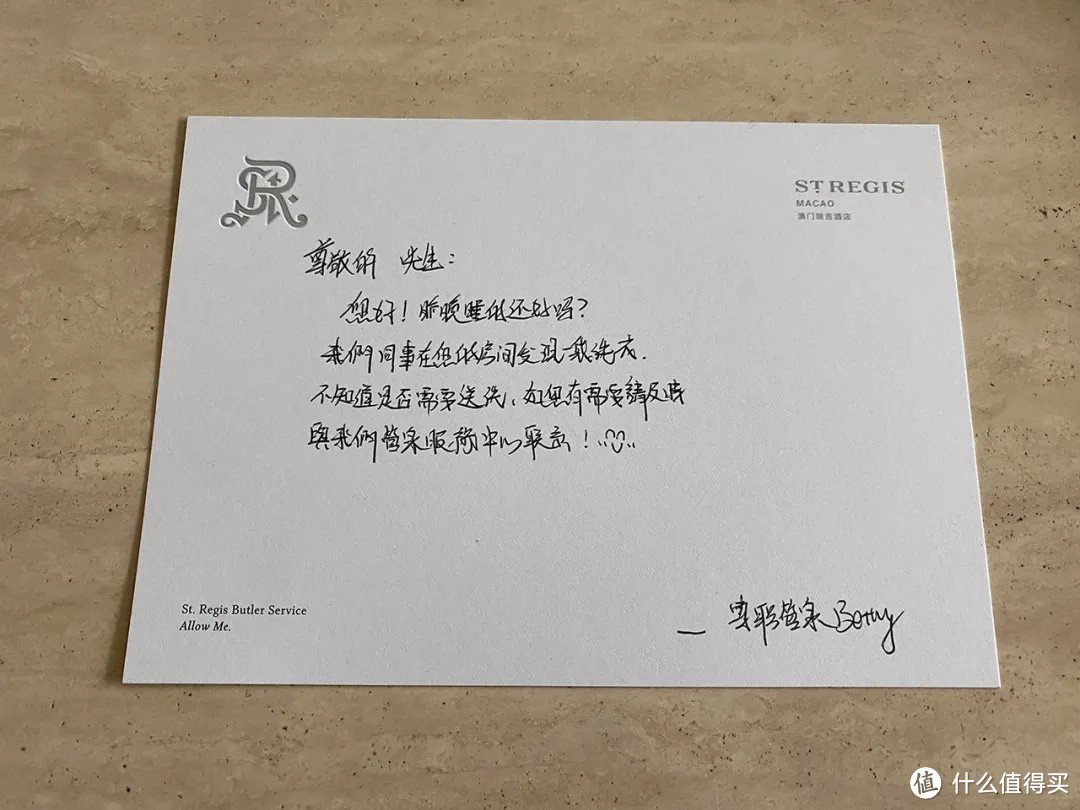 SR
ST. REGIS
MACAO
澳门瑞吉酒店
尊敬的 先生：
您好！昨晚睡的还好吗？
我们同事在您的房间发现一袋洗衣.
不知道是否需要送洗，如您有需要請及时
與我们管家服务中心联系！
— 專职管家 Betty
St. Regis Butler Service
Allow Me.
值 什么值得买